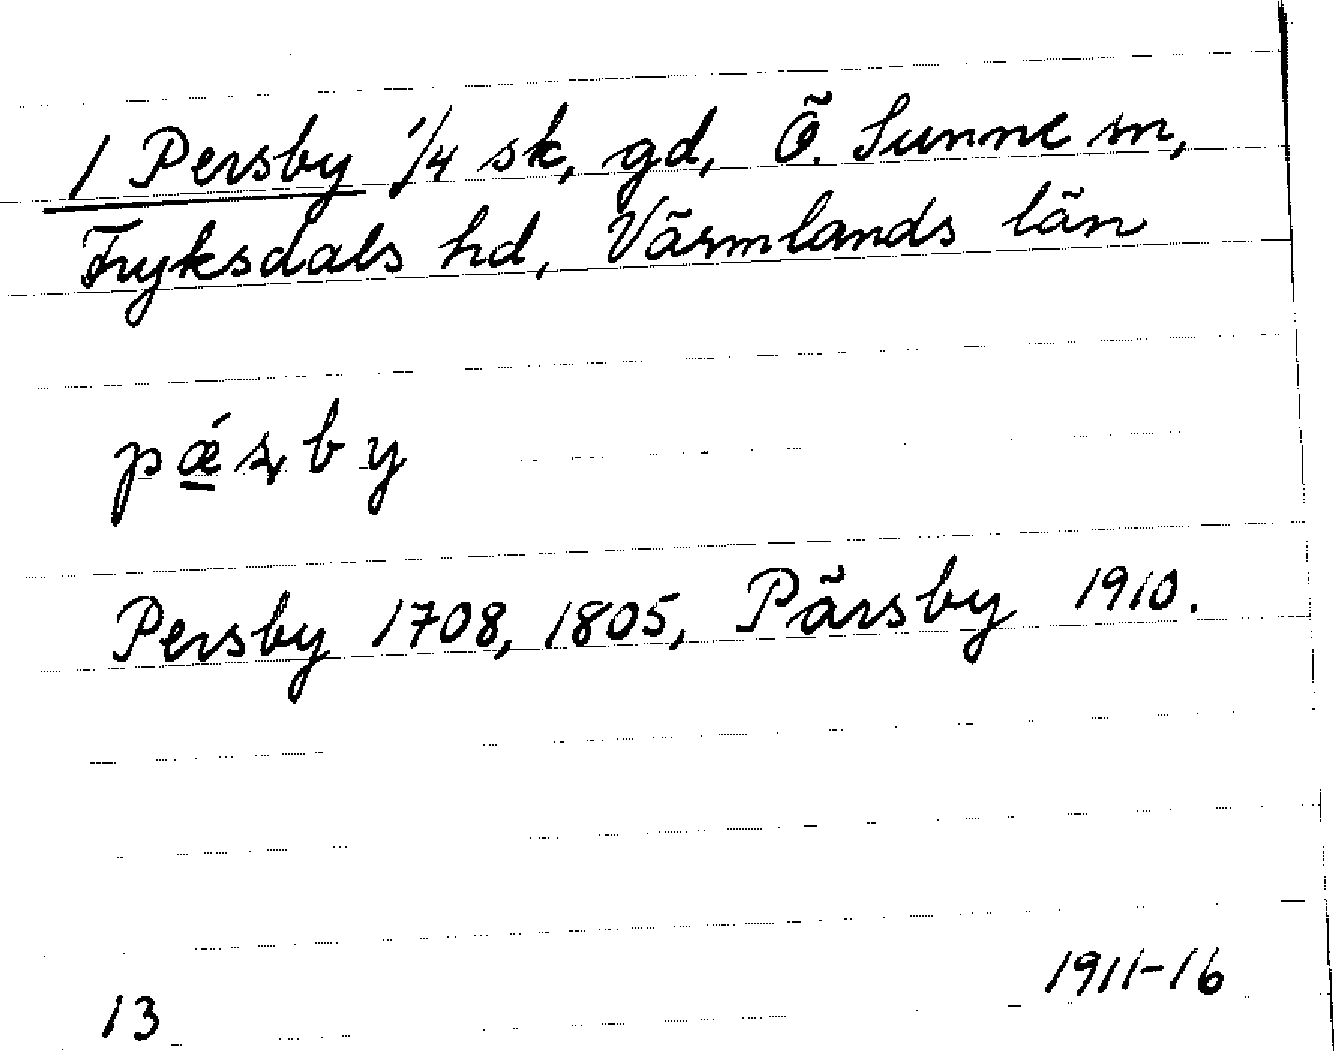 1 Persby 1/4 sk, gd, Ö. Sunne sn,
Fryksdals hd, Värmlands län
pǽʂby
Persby 1708, 1805, Pärsby 1910.
1911-16
13